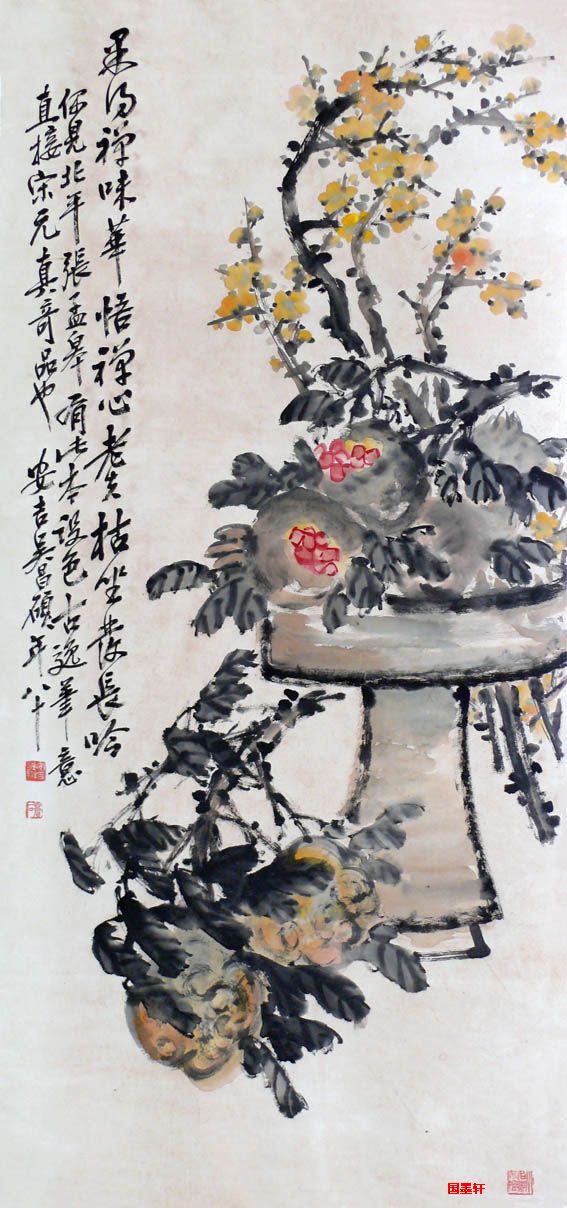 果得禅味華悟禅心老夫枯坐發長吟
伃見北平張孟皋有此本設色古逸筆意
直接宋元真奇品也 安吉吳昌碩年八十
国墨轩